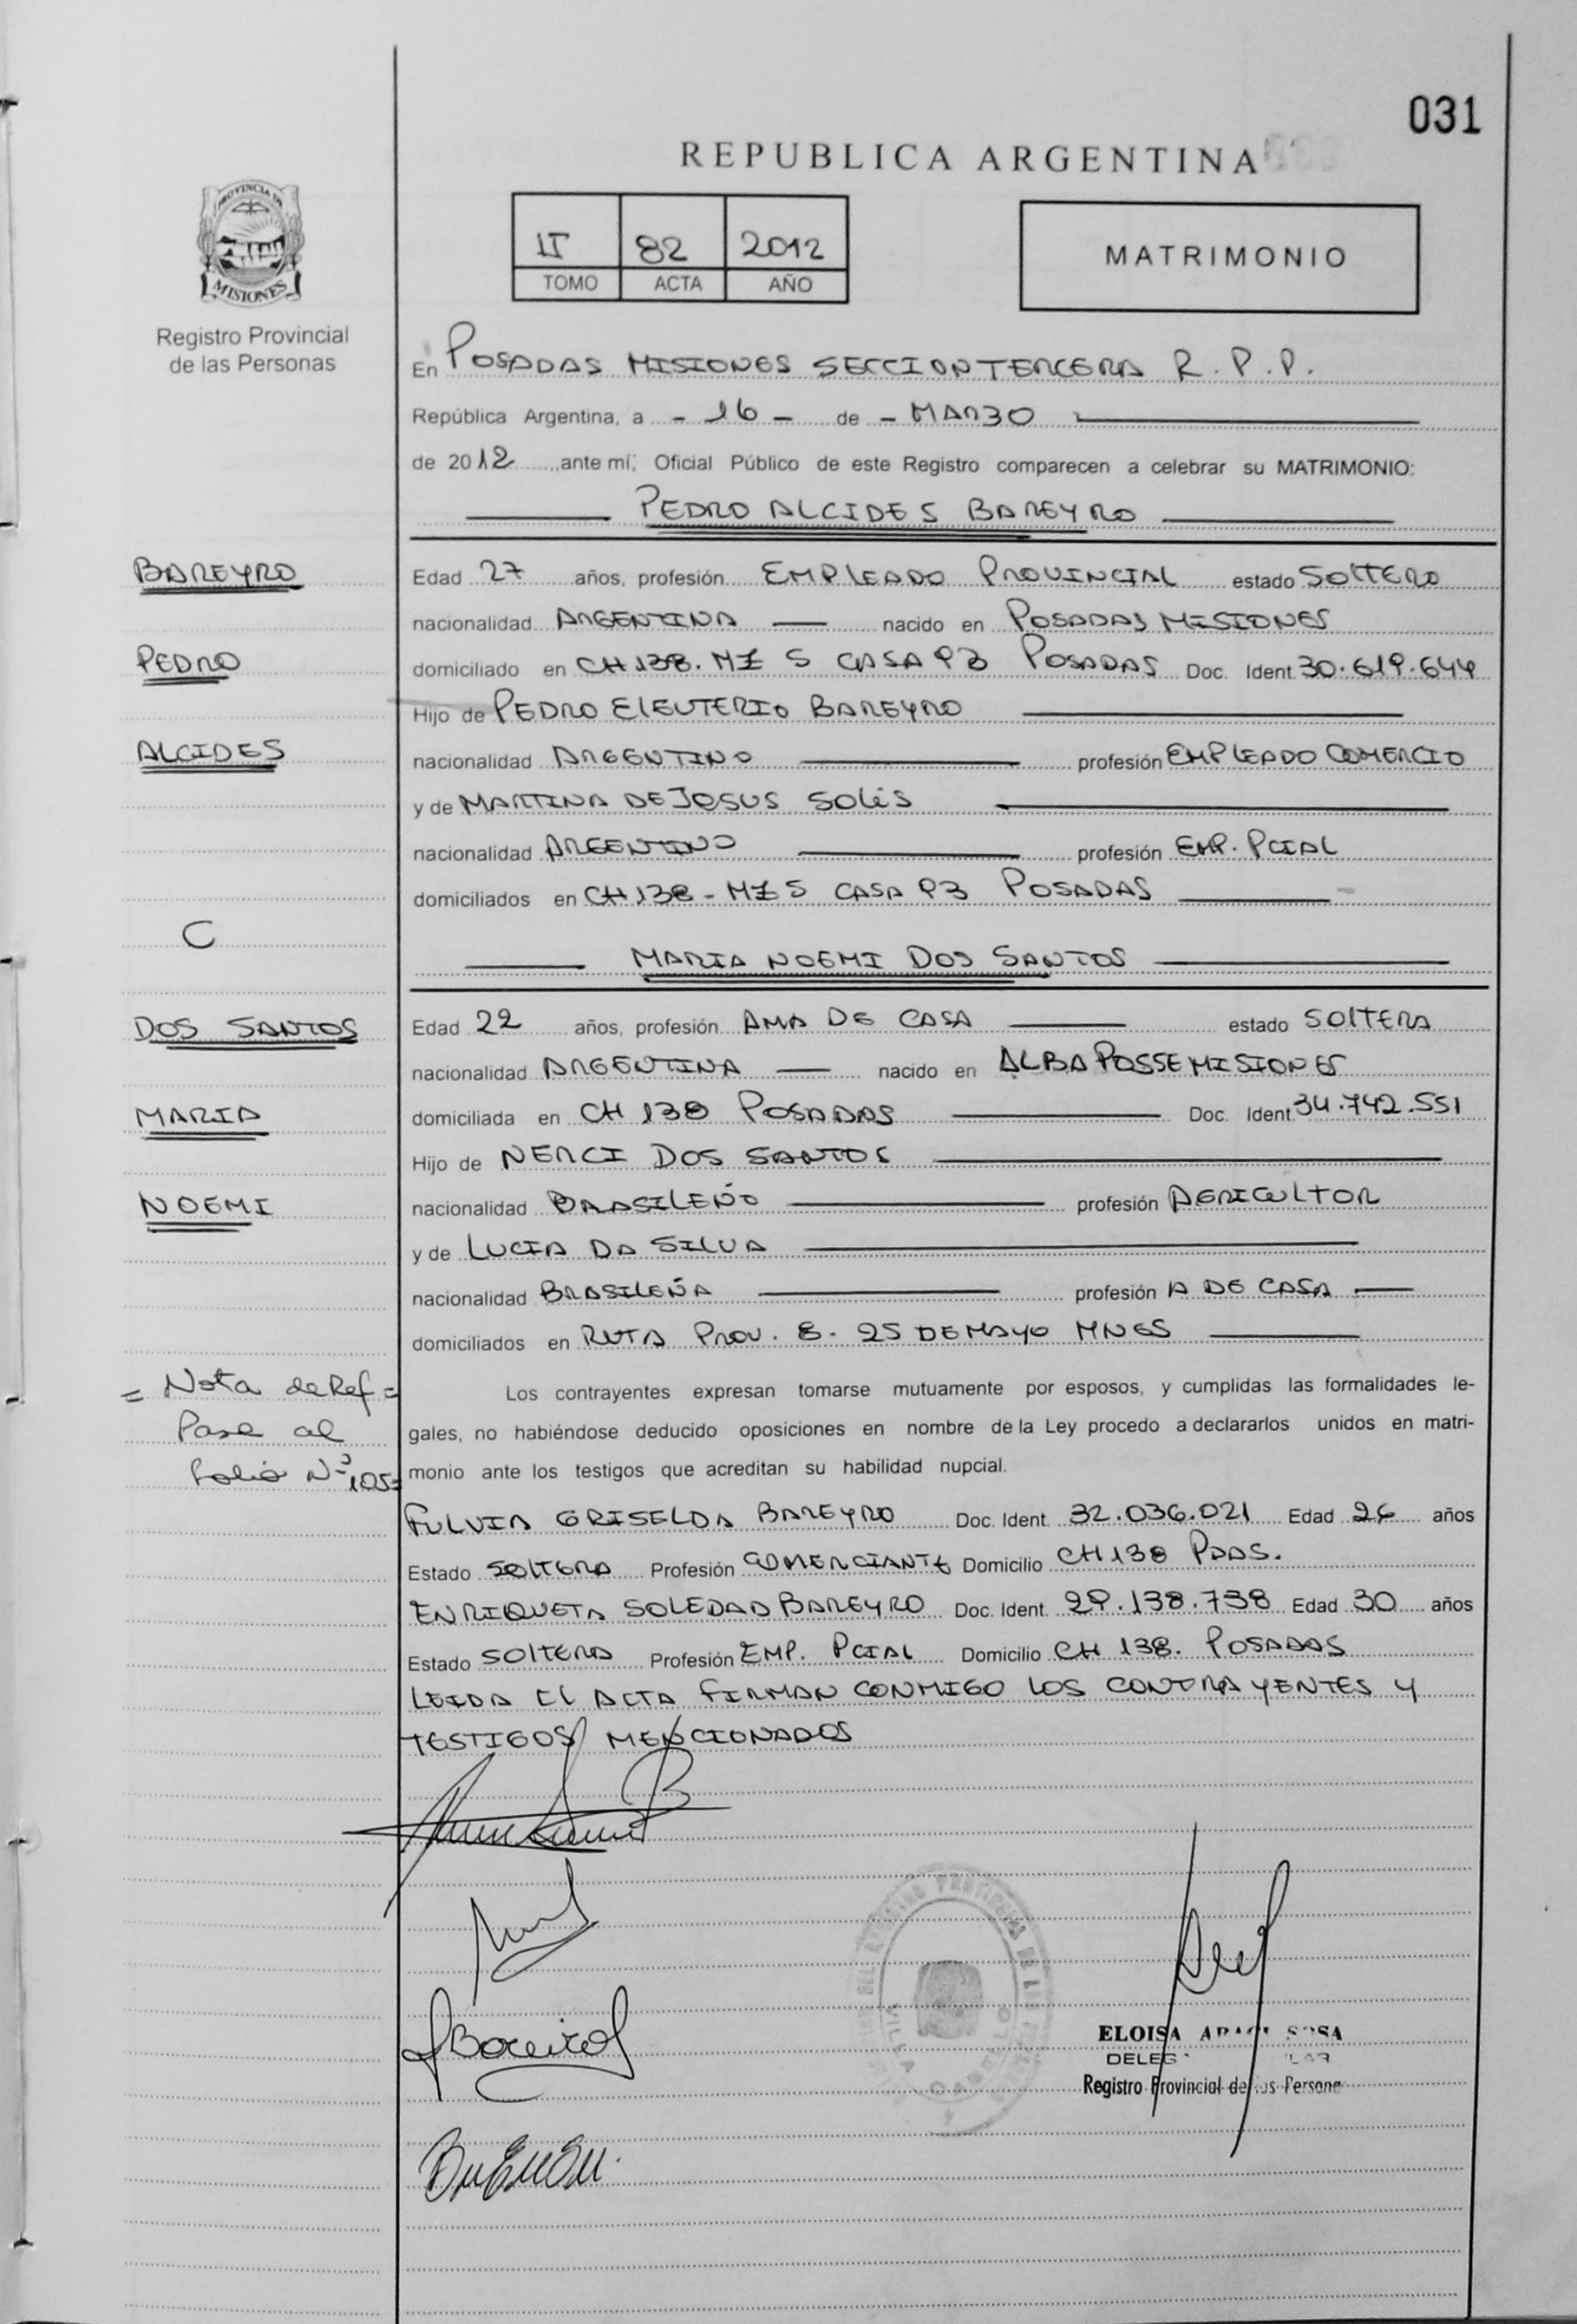 031
REPUBLICA ARGENTINA
PROVINCIA DE
MISIONES
Registro Provincial
de las Personas
II 82 2012
TOMO ACTA AÑO
MATRIMONIO
En POSADAS MISIONES SECCION TERCERA R.P.P.
República Argentina, a - 16 - de - MARZO
de 2012 ante mí; Oficial Público de este Registro comparecen a celebrar su MATRIMONIO:
PEDRO ALCIDES BAREYRO
BAREYRO
PEDRO
ALCIDES
Edad 27 años, profesión EMPLEADO PROVINCIAL estado SOLTERO
nacionalidad ARGENTINA nacido en POSADAS MISIONES
domiciliado en CH 138. MZ 5 CASA 93 POSADAS Doc. Ident. 30.619.644
Hijo de PEDRO ELEUTERIO BAREYRO
nacionalidad ARGENTINO profesión EMPLEADO COMERCIO
y de MARTINA DE JESUS SOLIS
nacionalidad ARGENTINO profesión EMP. PCIAL
domiciliados en CH 138 - MZ 5 CASA 93 POSADAS
C
MARIA NOEMI DOS SANTOS
DOS SANTOS
MARIA
NOEMI
Edad 22 años, profesión AMA DE CASA estado SOLTERA
nacionalidad ARGENTINA nacido en ALBA POSSE MISIONES
domiciliada en CH 138 POSADAS Doc. Ident. 34.742.551
Hijo de NERCI DOS SANTOS
nacionalidad BRASILEÑO profesión AGRICULTOR
y de LUCIA DA SILVA
nacionalidad BRASILEÑA profesión A DE CASA
domiciliados en RUTA PROV. 8 - 25 DE MAYO MNES
= Nota de Ref =
Pase al
folio Nº 105=
Los contrayentes expresan tomarse mutuamente por esposos, y cumplidas las formalidades le-
gales, no habiéndose deducido oposiciones en nombre de la Ley procedo a declararlos unidos en matri-
monio ante los testigos que acreditan su habilidad nupcial.
FULVIA GRISELDA BAREYRO Doc. Ident. 32.036.021 Edad 26 años
Estado SOLTERA Profesión COMERCIANTE Domicilio CH 138 PDAS.
ENRIQUETA SOLEDAD BAREYRO Doc. Ident. 29.138.738 Edad 30 años
Estado SOLTERA Profesión EMP. PCIAL Domicilio CH 138. POSADAS
LEIDA EL ACTA FIRMAN CONMIGO LOS CONTRAYENTES Y
TESTIGOS MENCIONADOS
ELOISA SOSA
Registro Provincial de las Persona